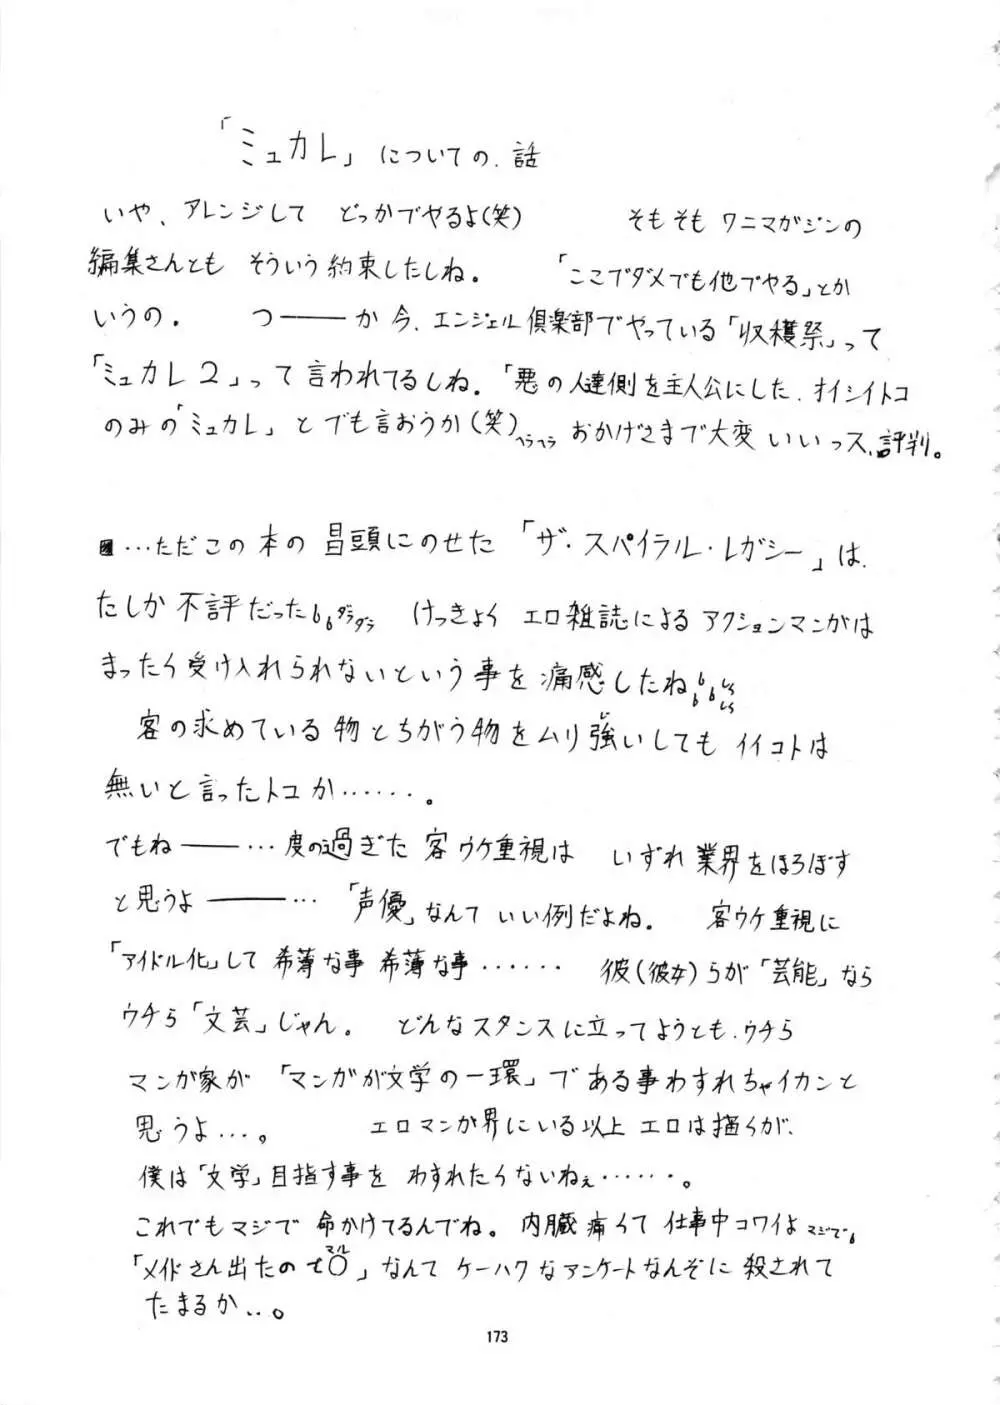 「ミュカレ」についての、話
いや、アレンジして どっかでやるよ(笑) そもそも ワニマガジンの
編集さんとも そういう約束したしね。 「ここでダメでも他でやる」とか
いうの。 つ――か 今、エンジェル倶楽部でやっている「収穫祭」って
「ミュカレ2」って言われてるしね。「悪の人達側を主人公にした、オイシイトコ
のみの「ミュカレ」とでも言おうか(笑)ヘラヘラ おかげさまで大変 いいっス、評判。
…ただこの本の冒頭にのせた「ザ・スパイラル・レガシー」は、
たしか不評だった ダラダラ けっきょく エロ雑誌によるアクションマンガは
まったく受け入れられないという事を痛感したね
客の求めている物とちがう物をムリ強いしても イイコトは
無いと言ったトコか・・・・・・。
でもね――…度の過ぎた客ウケ重視は いずれ業界をほろぼす
と思うよ――… 「声優」なんていい例だよね。 客ウケ重視に
「アイドル化」して 希薄な事 希薄な事・・・・・・ 彼(彼女)らが「芸能」なら
ウチら「文芸」じゃん。 どんなスタンスに立ってようとも、ウチら
マンガ家が 「マンガが文学の一環」である事わすれちゃイカンと
思うよ…。 エロマンガ界にいる以上 エロは描くが、
僕は「文学」目指す事を わすれたくないねぇ・・・・・・。
これでもマジで 命かけてるんでね。 内臓痛くて 仕事中コワイよ マジで
「メイドさん出たので〇マル」なんて ケーハクなアンケートなんぞに 殺されて
たまるか…。
173